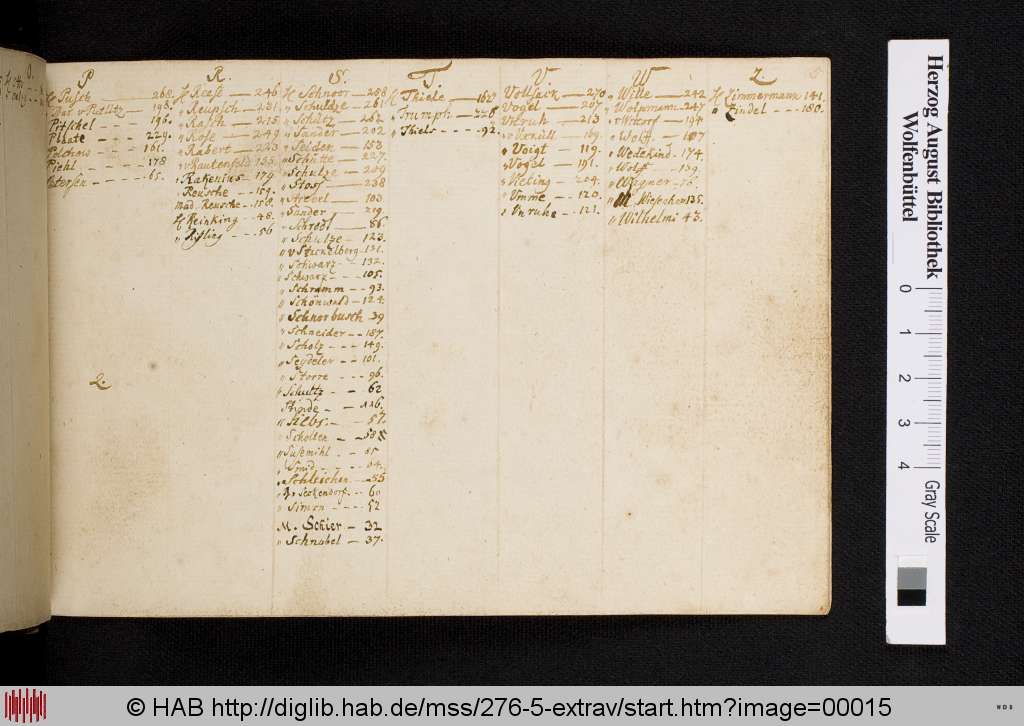 P
H Pusch 268.
Bar. v. Putlitz 198.
Pitschel 196.
Plaate 229.
161.
Piehl 178
Petersen 65.
Q.
R.
H Reese 246
" Reupsch 231.
" Ralff 215
" Rose 249
" Rabert 223
" Rautenfeld 155.
" Rakenius 179
Reusche 159.
Mad. Reusche 158.
H Reinking 48.
" Rifling 56
S.
H Schnoor 258
" Schultze 261
" Schütz 262
" Sander 202
" Seiden 153
" Schütte 227.
" Schulze 209
" Stoss 238
" 103
" Sander 219.
" Schredl 86
" Schulze 123.
" v Stichelberg 121.
" Schwarz 132.
" Schwarz 105.
" Schramm 93.
" Schönwald 124.
" Schnorbusch 39
" Schneider 187.
" Scholz 149.
" Seydeler 101.
" Storre 96.
" Schultz 62
116.
57.
" Scholten 58
" Susemihl 85
" Smid
" Schleichen 55
" v Seckendorf 60
" Simon 52
M. Schier 32
" Schnabel 37.
T
H Thiele 162
" Trumph 226
" Thiele 92.
V
Vollsack 270
Vogel 207
213
169.
" Voigt 119.
" Vogel 191.
" Vieting 204.
" Vmme 120.
" Vnruhe 121.
W
" Wille 242
" Wolpmann 247
194
" Wolff 107
" Wedekind 174.
" Wolf 139.
" Wagner 76.
" M Wiesechen 135.
" Wilhelmi 43.
Z.
H Zimmermann 141.
" Zindel 180.
Herzog August Bibliothek
Wolfenbüttel
0 1 2 3 4
Gray Scale
© HAB http://diglib.hab.de/mss/276-5-extrav/start.htm?image=00015
WDB